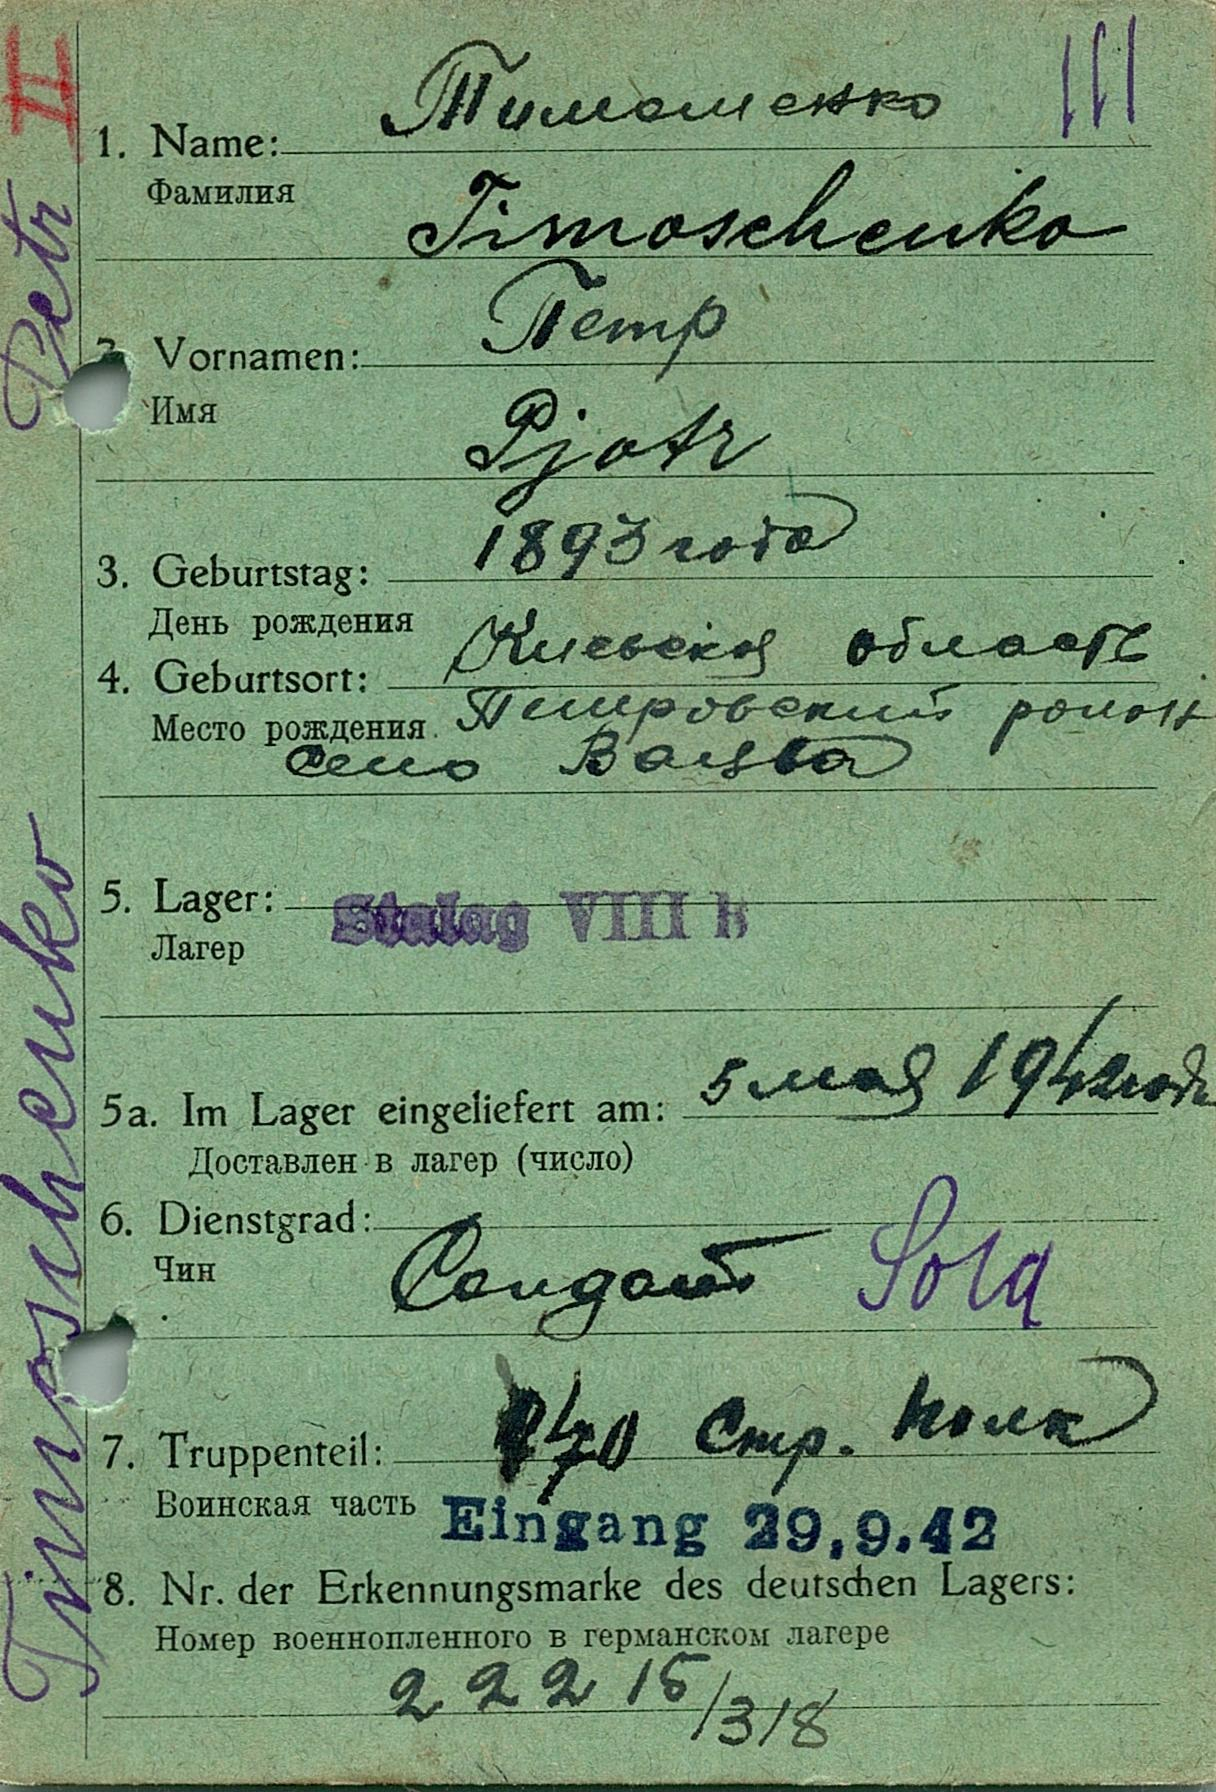 II
111
Тимошенко
1. Name:
Фамилия
Timoschenko
Петр
2. Vornamen:
Имя
Pjotr
1893 года
3. Geburtstag:
День рождения
Киевская область
4. Geburtsort:
Место рождения. Петровский район
село
5. Lager: Stalag VIII B
Лагер
5 мая 1942 года
5a. Im Lager eingeliefert am:
Доставлен в лагер (число)
6. Dienstgrad:
Чин
Солдат Sold
7. Truppenteil: стр. полк
Воинская часть
Eingang 29.9.42
8. Nr. der Erkennungsmarke des deutschen Lagers:
Номер военнопленного в германском лагере
22215/318
Timoschenko Petr